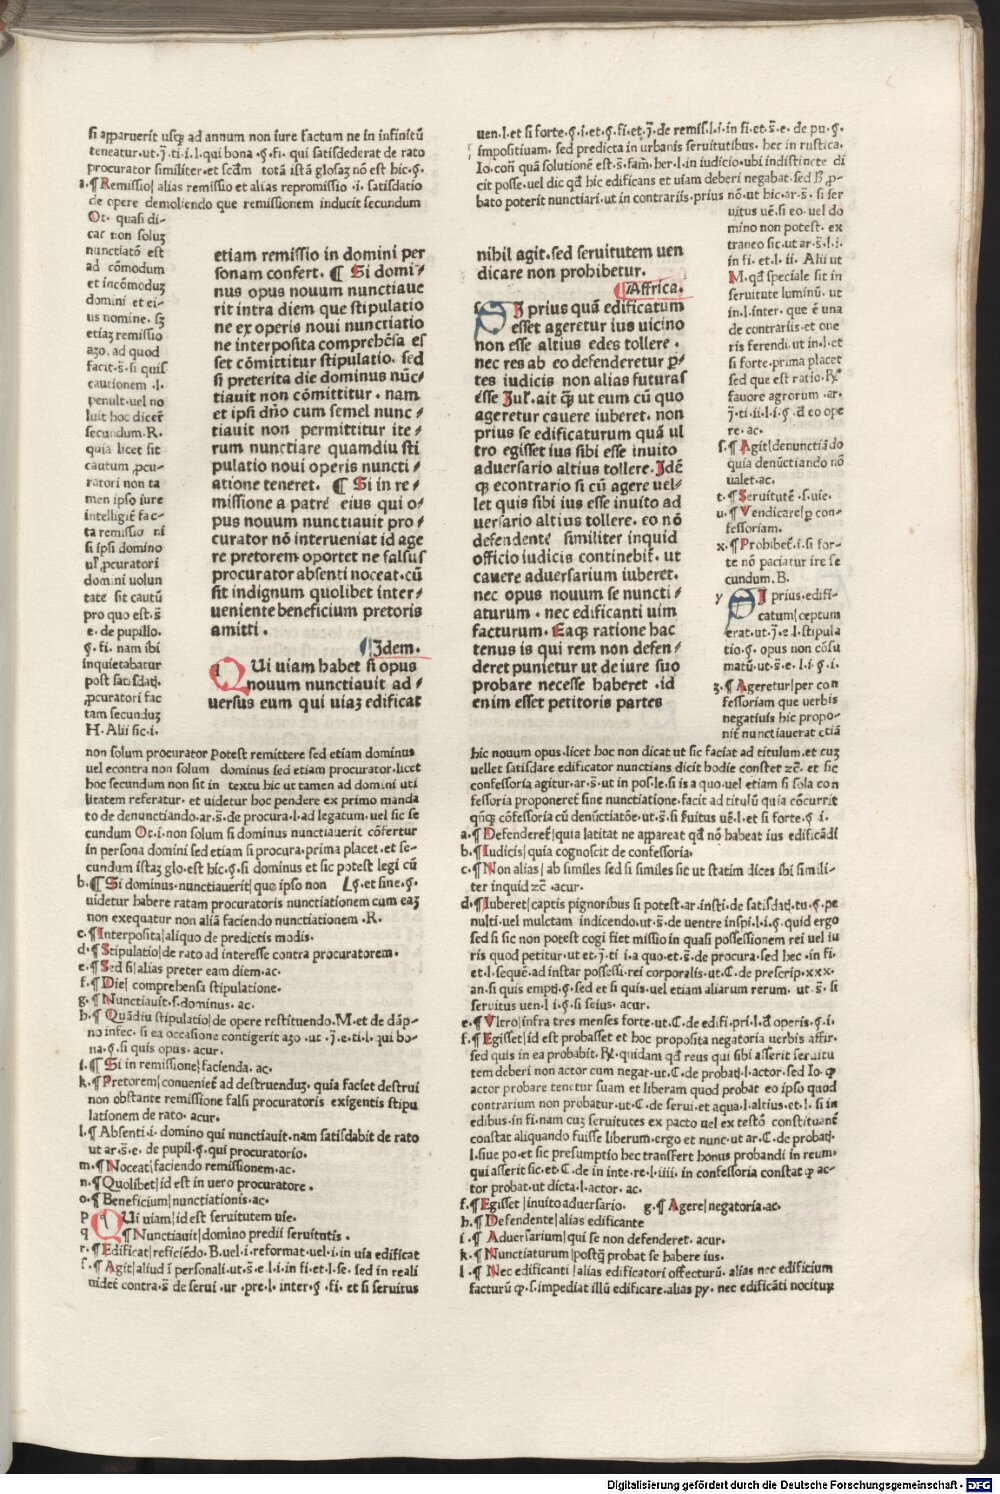 si apparuerit usq̃ ad annum non iure factum ne in infinitũ
teneatur·ut·j̃·ti·i·l·qui bona ·ꝯ·fi· qui satisdederat de rato
procurator similiter·et scdm̃ totã istã glosaʒ nõ est hic·ꝯ·
a·¶ Remissio| alias remissio et alias repromissio ·i· satisdatio
de opere demoliendo que remissionem inducit secundum
Ot· quasi di-
cat non soluʒ
nunctiatõ est
ad cõmodum
et incõmoduʒ
domini et ei-
us nomine· sʒ
etiaʒ remissio
aʒo· ad quod
facit·s̃·si quis
cautionem ·l·
penult·uel no
luit hoc diceř
secundum·R·
quia licet sit
cautum ꝓcu-
ratori non ta
men ipso iure
intelligit̃ fac-
ta remissio ni
si ipsi domino
ul̃ ꝓcuratori
domini uolun
tate sit cautũ
pro quo est·s̃
e· de pupillo·
ꝯ·fi· nam ibi
inquietabatur
post satisdatj·
ꝓcuratori fac
tam secunduʒ
H· Alii sic·i·
etiam remissio in domini per
sonam confert· ¶ Si domi⸗
nus opus nouum nunctiaue
rit intra diem que stipulatio
ne ex operis noui nunctiatio
ne interposita comprehẽsa eſ
set cõmittitur stipulatio· sed
si preterita die dominus nũc⸗
tiauit non cõmittitur · nam
et ipsi dño cum semel nunc ⸗
tiauit non permittitur ite⸗
rum nunctiare quamdiu sti
pulatio noui operis nuncti⸗
atione teneret· ¶ Si in re⸗
missione a patrẽ eius qui o⸗
pus nouum nunctiauit pro⸗
curator nõ interueniat id age
re pretorem oportet ne falsus
procurator absenti noceat·cũ
sit indignum quolibet inter⸗
ueniente beneficium pretoris
amitti ·
¶Idem·
Qui uiam habet si opus
nouum nunctiauit ad⸗
uersus eum qui uiaʒ edificat
non solum procurator potest remittere sed etiam dominus
uel econtra non solum dominus sed etiam procurator·licet
hoc secundum non sit in textu hic ut tamen ad domini uti
litatem referatur· et uidetur hoc pendere ex primo manda
to de denunctiando·ar·s̃·de procura·l·ad legatum·uel sic se
cundum Ot·i·non solum si dominus nunctiauerit cõfertur
in persona domini sed etiam si procura·prima placet·et se-
cundum istaʒ glo·est hic·ꝯ·si dominus et sic potest legi cũ
b·¶ Si dominus·nunctiauerit| quo ipso non ꝯ·et sine·ꝯ·
uidetur habere ratam procuratoris nunctiationem cum eaʒ
non exequatur non aliã faciendo nunctiationem ·R·
c·¶ Interposita| aliquo de predictis modis·
d·¶ Stipulatio| de rato ad interesse contra procuratorem·
e·¶ Sed si| alias preter eam diem·ac·
f·¶ Die| comprehensa stipulatione·
g·¶ Nunctiauit·s·dominus· ac·
h·¶ Quãdiu stipulatio| de opere restituendo·M·et de dãp-
no infec· si ea occasione contigerit aʒo ·ut ·j̃·e·ti·l· qui bo-
na·ꝯ·si quis opus· acur·
i·¶ Si in remissione| facienda· ac·
k·¶ Pretorem| conueniet̃ ad destruenduʒ· quia faciet destrui
non obstante remissione falsi procuratoris exigentis stipu
lationem de rato· acur·
l·¶ Absenti·i· domino qui nunctiauit·nam satisdabit de rato
ut ar·s̃·e· de pupil·ꝯ·qui procuratorio·
m·¶ Noceat| faciendo remissionem·ac·
n·¶ Quolibet| id est in uero procuratore·
o·¶ Beneficium| nunctiationis·ac·
p Qui uiam| id est seruitutem uie·
q ¶ Nunctiauit| domino predii seruitutis·
r·¶ Edificat| reficiẽdo·B·uel·i·reformat·uel·i·in uia edificat
s·¶ Agit| aliud i personali·ut·s̃·e·l·i·in fi·et·l·se· sed in reali
uidet̃ contra·s̃·de serui·ur·pre·l·inter·ꝯ·fi· et si seruitus
uen·l·et si forte·ꝯ·i·et·ꝯ·fi·et·j̃·de remis·l·i·in fi·et·s̃·e· de pu·ꝯ·
impositiuam· sed predicta in urbanis seruitutibus· hec in rustica·
Io·con̄ quã solutionẽ est·s̃·fam̃·her·l·in iudicio·ubi indistincte di
cit posse·uel dic qđ hic edificans et uiam deberi negabat·sed B̃ ꝓ-
bato poterit nunctiari·ut in contrariis·prius nõ·ut hic·ar·s̃· si ser
uitus uẽ·si eo·uel do
mino non potest· ex
traneo sic·ut ar·s̃·l·i·
in fi· et·l· ii· Alii ut
M·qđ speciale sit in
seruitute luminũ· ut
in·l·inter· que ẽ una
de contrariis·et one
ris ferendi·ut in·l·et
si forte·prima placet
sed que est ratio·R̃·
fauore agrorum ·ar·
j̃·ti·ii·l·i·ꝯ ·đ eo ope
re· ac·
s·¶ Agit| denunctiãdo
quia denũctiando nõ
ualet·ac·
t·¶ Seruitutẽ ·s·uie·
u·¶ Vendicare| ꝑ con-
fessoriam·
x·¶ Prohibet̃·i·si for-
te nõ paciatur ire se
cundum·B·
y SI prius·edifi-
catum| ceptum
erat·ut·j̃·e·l·stipula
tio·ꝯ· opus non cõsu
matũ·ut·s̃·e· l·i·ꝯ·i·
ʒ·¶ Ageretur| per con
fessoriam que uerbis
negatiuis hic propo-
nit̃ nunctiauerat etiã
nihil agit·sed seruitutem uen
dicare non prohibetur·
¶Affrica·
SI prius quã edificatum
esset ageretur ius uicino
non esse altius edes tollere·
nec res ab eo defenderetur ꝑ⸗
tes iudicis non alias futuras
esse Iul̃·ait q̃ ut eum cũ quo
ageretur cauere iuberet· non
prius se edificaturum quã ul
tro egisset ius sibi esse inuito
aduersario altius tollere·Idẽ
q̃ econtrario si cũ agere uel⸗
let quis sibi ius esse inuito ad
uersario altius tollere· eo nõ
defendentẽ similiter inquid
officio iudicis continebit̃· ut
cauere aduersarium iuberet·
nec opus nouum se nuncti⸗
aturum · nec edificanti uim
facturum· Eaq̃ ratione hac
tenus is qui rem non defen⸗
deret punietur ut de iure suo
probare necesse haberet ·id
enim esset petitoris partes
hic nouum opus·licet hoc non dicat ut sic faciat ad titulum·et cuʒ
uellet satisdare edificator nunctians dicit hodie constet ʒc̃· et sic
confessoria agitur·ar·s̃·ut in pos·le·si is a quo·uel etiam si sola con
fessoria proponeret̃ sine nunctiatione·facit ad titulũ quia cõcurrit
qñq̃ cõfessoria cũ denũctiatõe·ut·s̃·si s̃uitus uẽ·l·et si forte·ꝯ·i·
a·¶ Defenderet̃| quia latitat ne appareat qđ nõ habeat ius edificãdi
b·¶ Iudicis| quia cognoscit de confessoria·
c·¶ Non alias| ab similes sed si similes sic ut statim dices ibi simili-
ter inquid ʒc̃ ·acur·
d·¶ Iuberet| captis pignoribus si potest·ar·insti·de satisdatj·tu·ꝯ·pe
nulti·uel mulctam indicendo·ut·s̃·de uentre inspi·l·i·ꝯ·quid ergo
sed si sic non potest cogi fiet missio in quasi possessionem rei uel iu
ris quod petitur·ut et·j̃·ti i·a quo·et·s̃·de procura·sed hec·in fi·
et·l·sequẽ·ad instar possessi·rei corporalis·ut·C·de prescrip·xxx·
an·si quis emptj·ꝯ·sed et si quis·uel etiam aliarum rerum· ut s̃· si
seruitus uen·l i·ꝯ·si seius· acur·
e·¶ Vltro| infra tres menses forte·ut·C·de edifi·pri·l·đ operis·ꝯ·i·
f·¶ Egisset| id est probasset et hoc proposita negatoria uerbis affir·
sed quis in ea probabit· R̃·quidam qđ reus qui sibi asserit seruitu
tem deberi non actor cum negat·ut·C·de probatj·l·actor·sed Io· q̃
actor probare tenetur suam et liberam quod probat eo ipso quod
contrarium non probatur·ut·C·de serui·et aqua·l·altius·et·l· si in
edibus·in fi·nam cuʒ seruitutes ex pacto uel ex testõ constituant̃
constat aliquando fuisse liberum·ergo et nunc·ut ar·C·de probatj·
l·siue po·et sic presumptio hec transfert honus probandi in reum·
qui asserit sic·et·C·de in inte·re·l·iiii·in confessoria constat q̃ ac-
tor probat·ut dicta·l·actor· ac·
f·¶ Egisset| inuito aduersario· g·¶ Agere| negatoria·ac·
h·¶ Defendente| alias edificante
i·¶ Aduersarium| qui se non defenderet· acur·
k·¶ Nunctiaturum| postq̃ probat se habere ius·
l·¶ Nec edificanti| alias edificatori offecturũ· alias nec edificium
facturũ q̃·s·impediat illũ edificare·alias py· nec edificãti nocituʒ
Digitalisierung gefördert durch die Deutsche Forschungsgemeinschaft - DFG